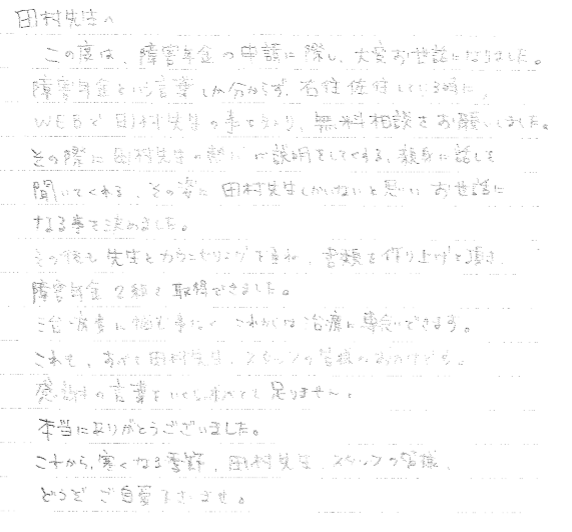 田村先生へ
この度は、障害年金の申請に際し、大変お世話になりました。
障害年金という言葉しか分からず、右往左往している時に、
WEBで田村先生の事を知り、無料相談をお願いしました。
その際に田村先生の熱い説明をしてくする、親身に話しを
聞いてくれる、その姿に田村先生しかいないと思いお世話に
なる事を決めました。
その後も先生とカウンセリングを重ね、書類を作り上げて頂き、
障害年金2級を取得できました。
これからは治療に専念できます。
これも、すべて田村先生、スタッフの皆様のおかげです。
感謝の言葉をいくら述べても足りません。
本当にありがとうございました。
これから、寒くなる季節、田村先生、スタッフの皆様、
どうぞご自愛下さいませ。